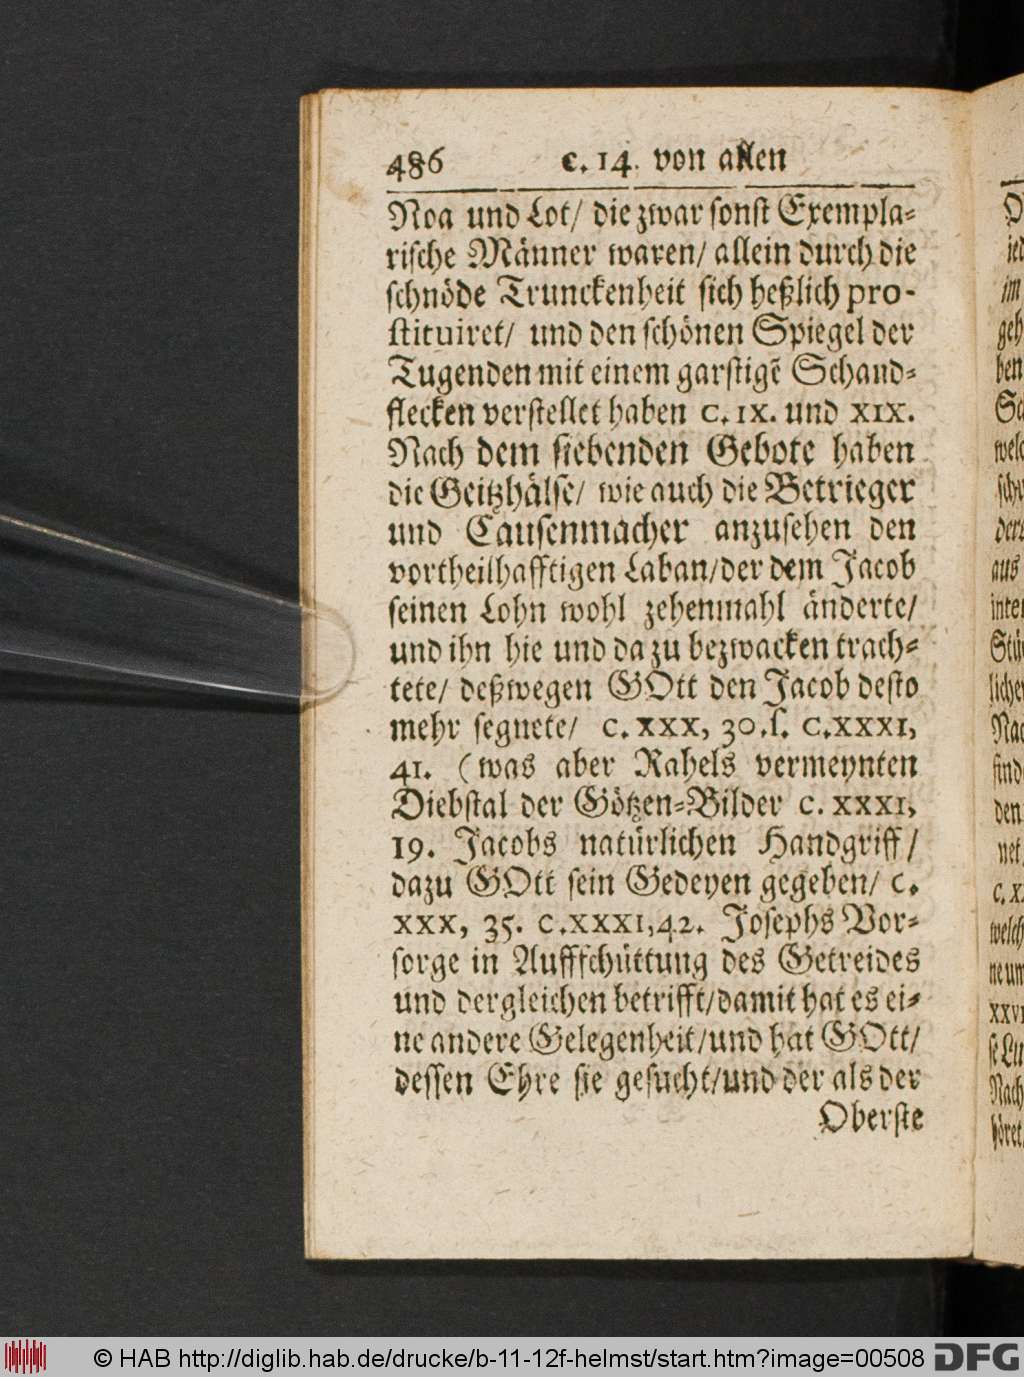 486 c. 14. von allen
Noa und Lot/ die zwar sonst Exempla-
rische Männer waren/ allein durch die
schnöde Trunckenheit sich heßlich pro-
stituiret/ und den schönen Spiegel der
Tugenden mit einem garstigẽ Schand-
flecken verstellet haben C. IX. und XIX.
Nach dem siebenden Gebote haben
die Geitzhälse/ wie auch die Betrieger
und Causenmacher anzusehen den
vortheilhafftigen Laban/der dem Jacob
seinen Lohn wohl zehenmahl änderte/
und ihn hie und da zu bezwacken trach-
tete/ deßwegen GOtt den Jacob desto
mehr segnete/ C. XXX, 30. ſ. C.XXXI,
41. (was aber Rahels vermeynten
Diebstal der Götzen-Bilder C. XXXI,
19. Jacobs natürlichen Handgriff/
dazu GOtt sein Gedeyen gegeben/ C.
XXX, 35. C.XXXI,42. Josephs Vor-
sorge in Auffschüttung des Getreides
und dergleichen betrifft/damit hat es ei-
ne andere Gelegenheit/und hat GOtt/
dessen Ehre sie gesucht/und der als der
Oberste
im
geh
ben
aus
Nach
© HAB http://diglib.hab.de/drucke/b-11-12f-helmst/start.htm?image=00508 DFG